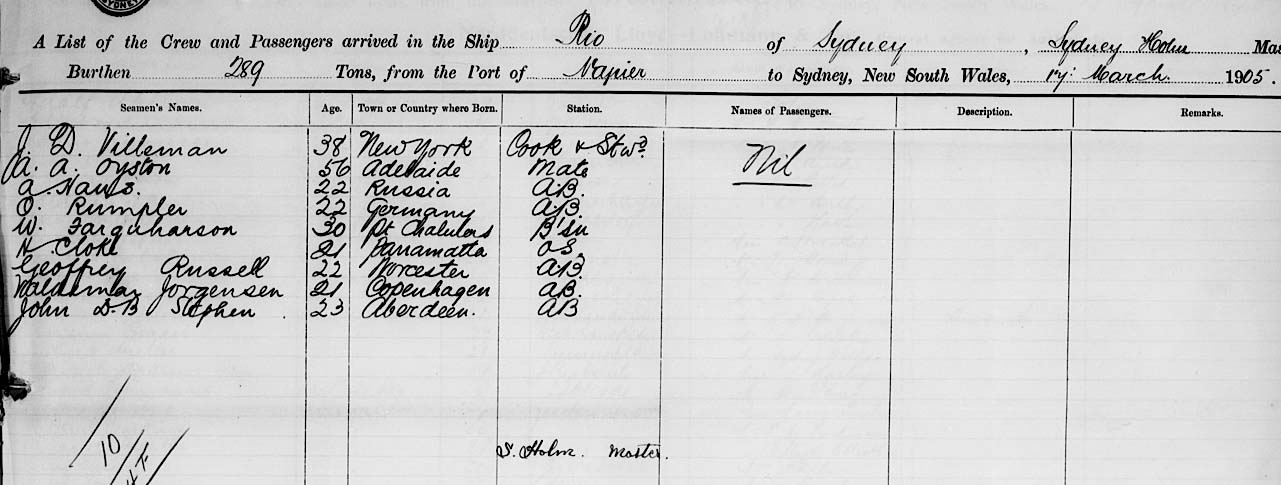 SYDNEY
A List of the Crew and Passengers arrived in the Ship Rio of Sydney, Sydney Holm Mas
Burthen 289 Tons, from the Port of Napier to Sydney, New South Wales, 17: March. 1905.
Seamen's Names. Age. Town or Country where Born. Station. Names of Passengers. Description. Remarks.
J. D. Villeman 38 New York Cook & Stwd. Nil
A. A. Oyston 56 Adelaide Mate
A 22 Russia AB.
O. Rumpler 22 Germany AB.
W. Farquharson 30 Pt Chalmers B'sn
H Cloke 21 Parramatta OS.
Geoffrey Russell 22 Worcester AB.
Waldemar Jorgensen 21 Copenhagen AB.
John D. B Stephen. 23 Aberdeen. AB
10
S. Holm. Master.